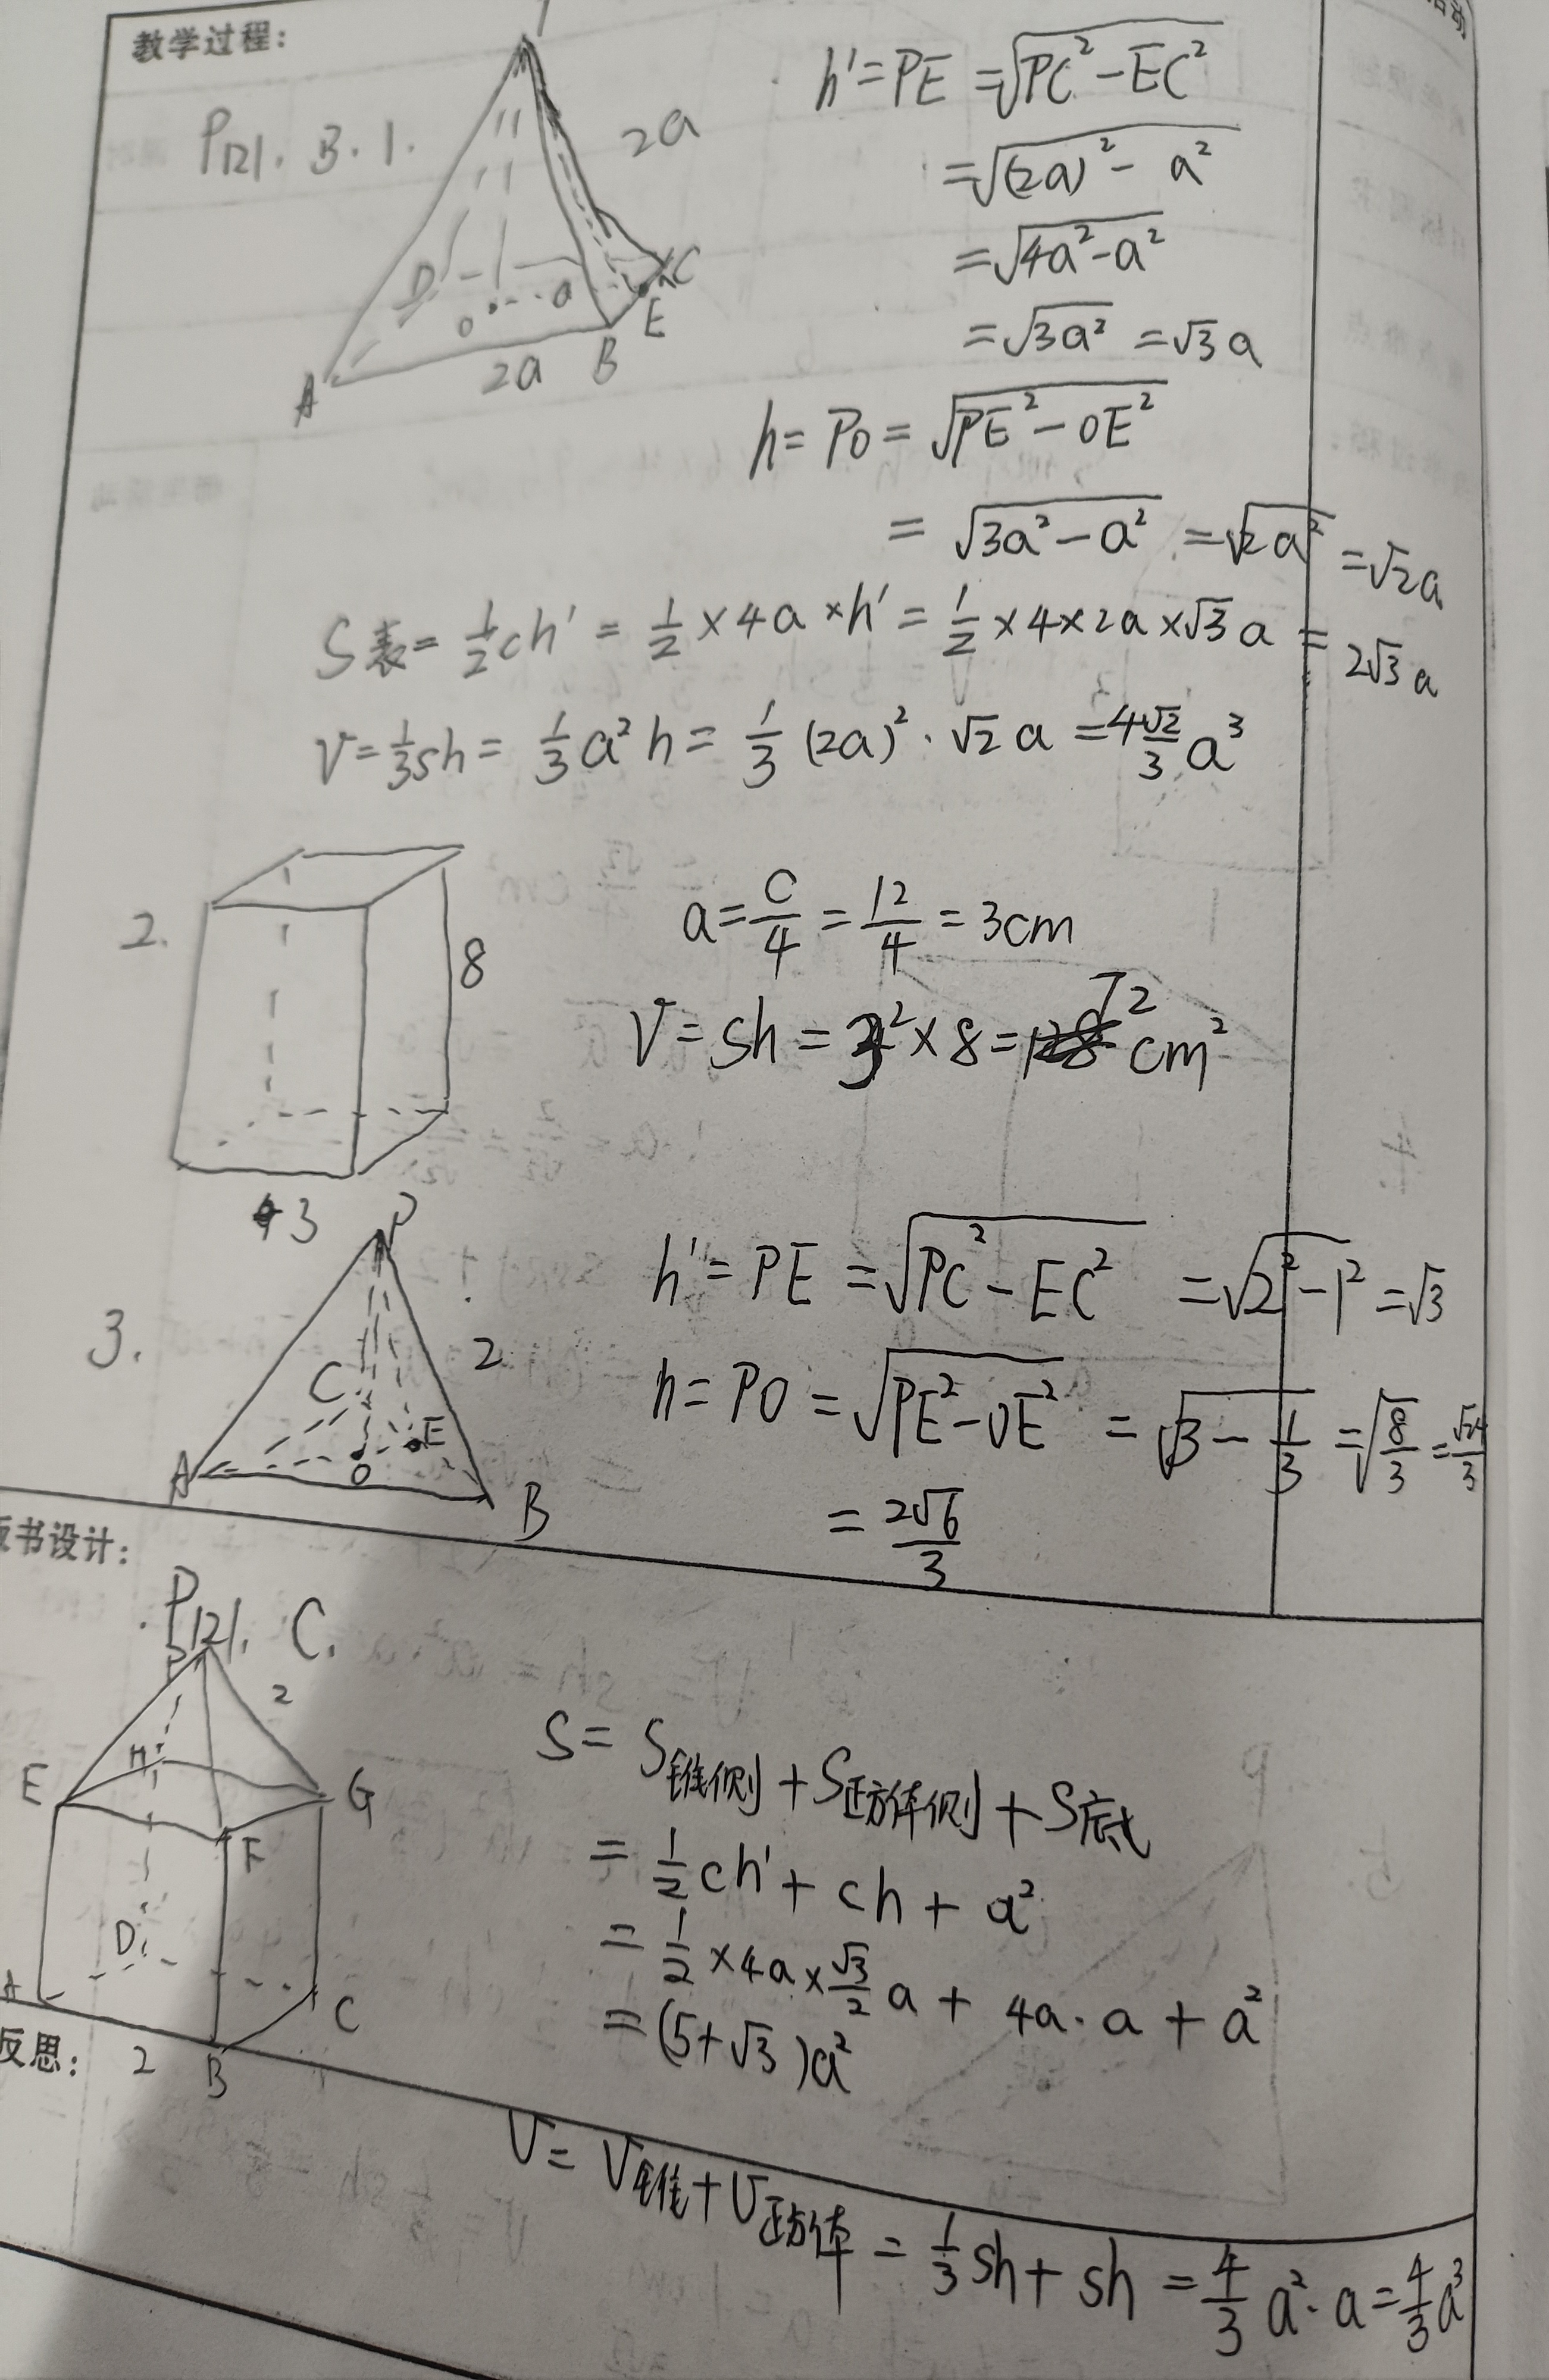 教学过程:
P121. B. 1.
2a
D
O
a
C
E
A
2a
B
h'=PE=√(PC²-EC²)
=√((2a)²-a²)
=√(4a²-a²)
=√(3a²)=√3a
h=PO=√(PE²-OE²)
=√(3a²-a²)=√(2a²)=√2a
S表=1/2ch'=1/2×4a×h'=1/2×4×2a×√3a=2√3a
V=1/3sh=1/3a²h=1/3(2a)²·√2a=4√2/3a³
2.
8
3
a=C/4=12/4=3cm
V=Sh=3²×8=72cm²
3.
P
2
C
E
A
O
B
h'=PE=√(PC²-EC²)=√(2²-1²)=√3
h=PO=√(PE²-OE²)=√(3-1/3)=√(8/3)=√24/3
=2√6/3
板书设计:
P121. C.
P
2
E
H
G
F
D
A
C
2
B
S=S锥侧+S正方体侧+S底
=1/2ch'+ch+a²
=1/2×4a×√3/2a+4a·a+a²
=(5+√3)a²
反思:
V=V锥+V正方体=1/3sh+sh=4/3a²·a=4/3a³